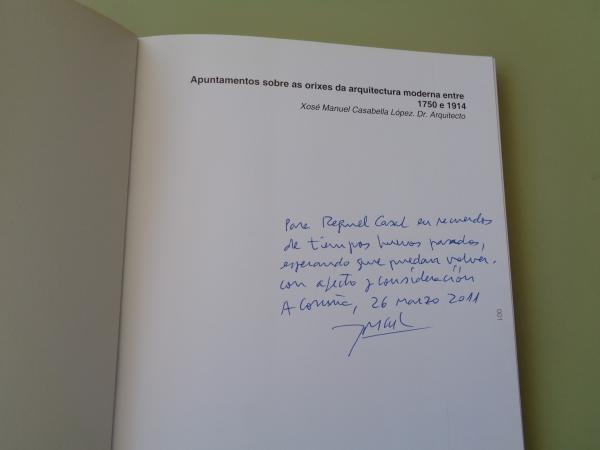 Apuntamentos sobre as orixes da arquitectura moderna entre
1750 e 1914
Xosé Manuel Casabella López. Dr. Arquitecto
Para Raquel Casal en recuerdos
de tiempos buenos pasados,
esperando que puedan volver.
con afecto y consideración
A Coruña, 26 marzo 2011
001